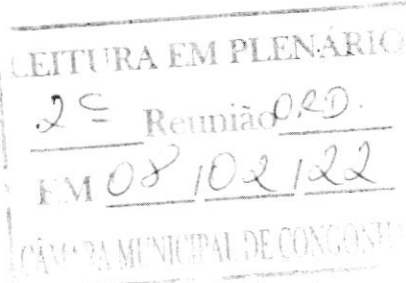 LEITURA EM PLENÁRIO
2ª Reunião ORD.
EM 08/02/22
CÂMARA MUNICIPAL DE CONGONH